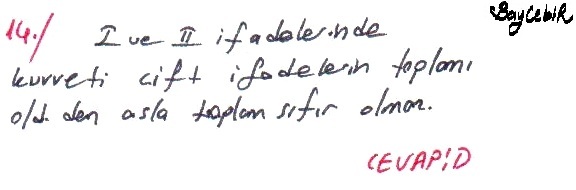 BayCebiR
14./ I ve II ifadelerinde
kuvveti çift ifadelerin toplamı
old. den asla toplam sıfır olmaz.
CEVAP:D